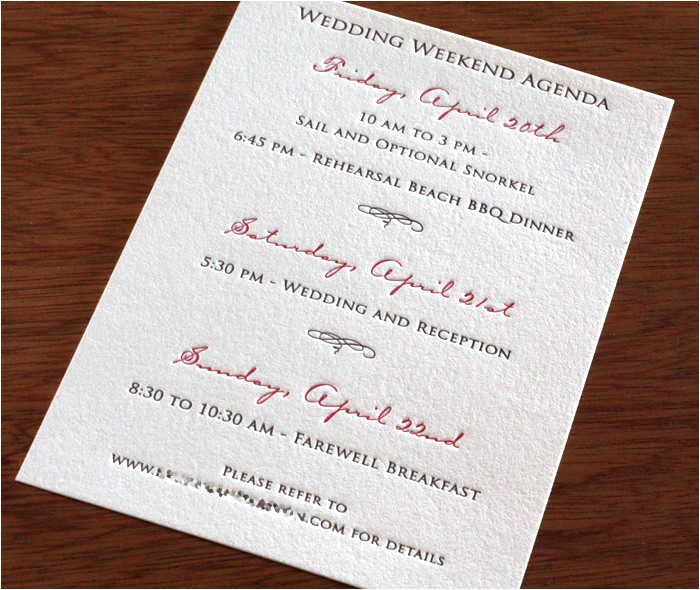 Wedding Weekend Agenda
Friday, April 20th
10 am to 3 pm -
Sail and Optional Snorkel
6:45 pm - Rehearsal Beach BBQ Dinner
Saturday, April 21st
5:30 pm - Wedding and Reception
Sunday, April 22nd
8:30 to 10:30 am - Farewell Breakfast
Please refer to
www. .com for details